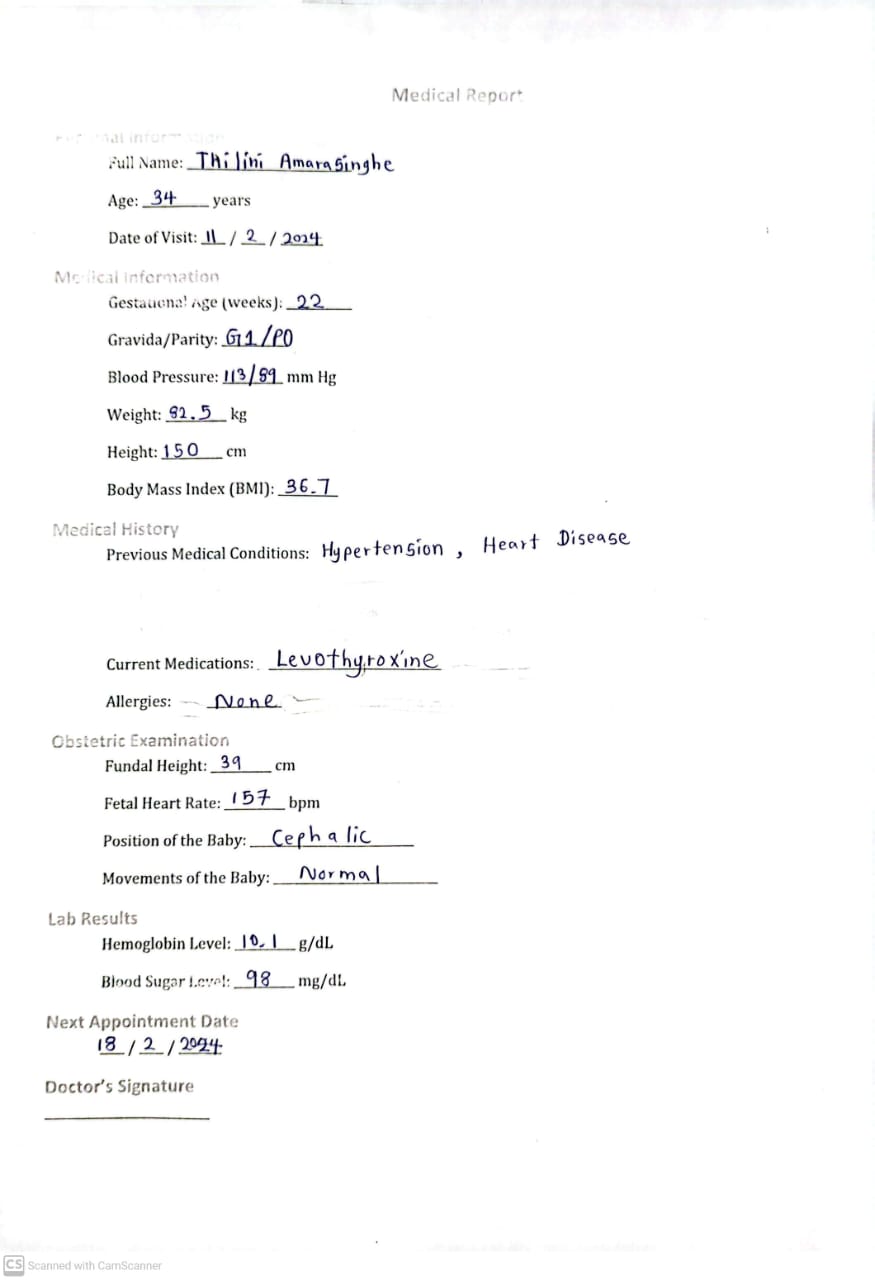 Medical Report
Personal Information
Full Name: Thilini Amarasinghe
Age: 34 years
Date of Visit: 11 / 2 / 2024
Medical Information
Gestational Age (weeks): 22
Gravida/Parity: G1/P0
Blood Pressure: 113/89 mm Hg
Weight: 82.5 kg
Height: 150 cm
Body Mass Index (BMI): 36.7
Medical History
Previous Medical Conditions: Hypertension , Heart Disease
Current Medications: Levothyroxine
Allergies: None
Obstetric Examination
Fundal Height: 39 cm
Fetal Heart Rate: 157 bpm
Position of the Baby: Cephalic
Movements of the Baby: Normal
Lab Results
Hemoglobin Level: 10.1 g/dL
Blood Sugar Level: 98 mg/dL
Next Appointment Date
18 / 2 / 2024
Doctor's Signature
CS Scanned with CamScanner